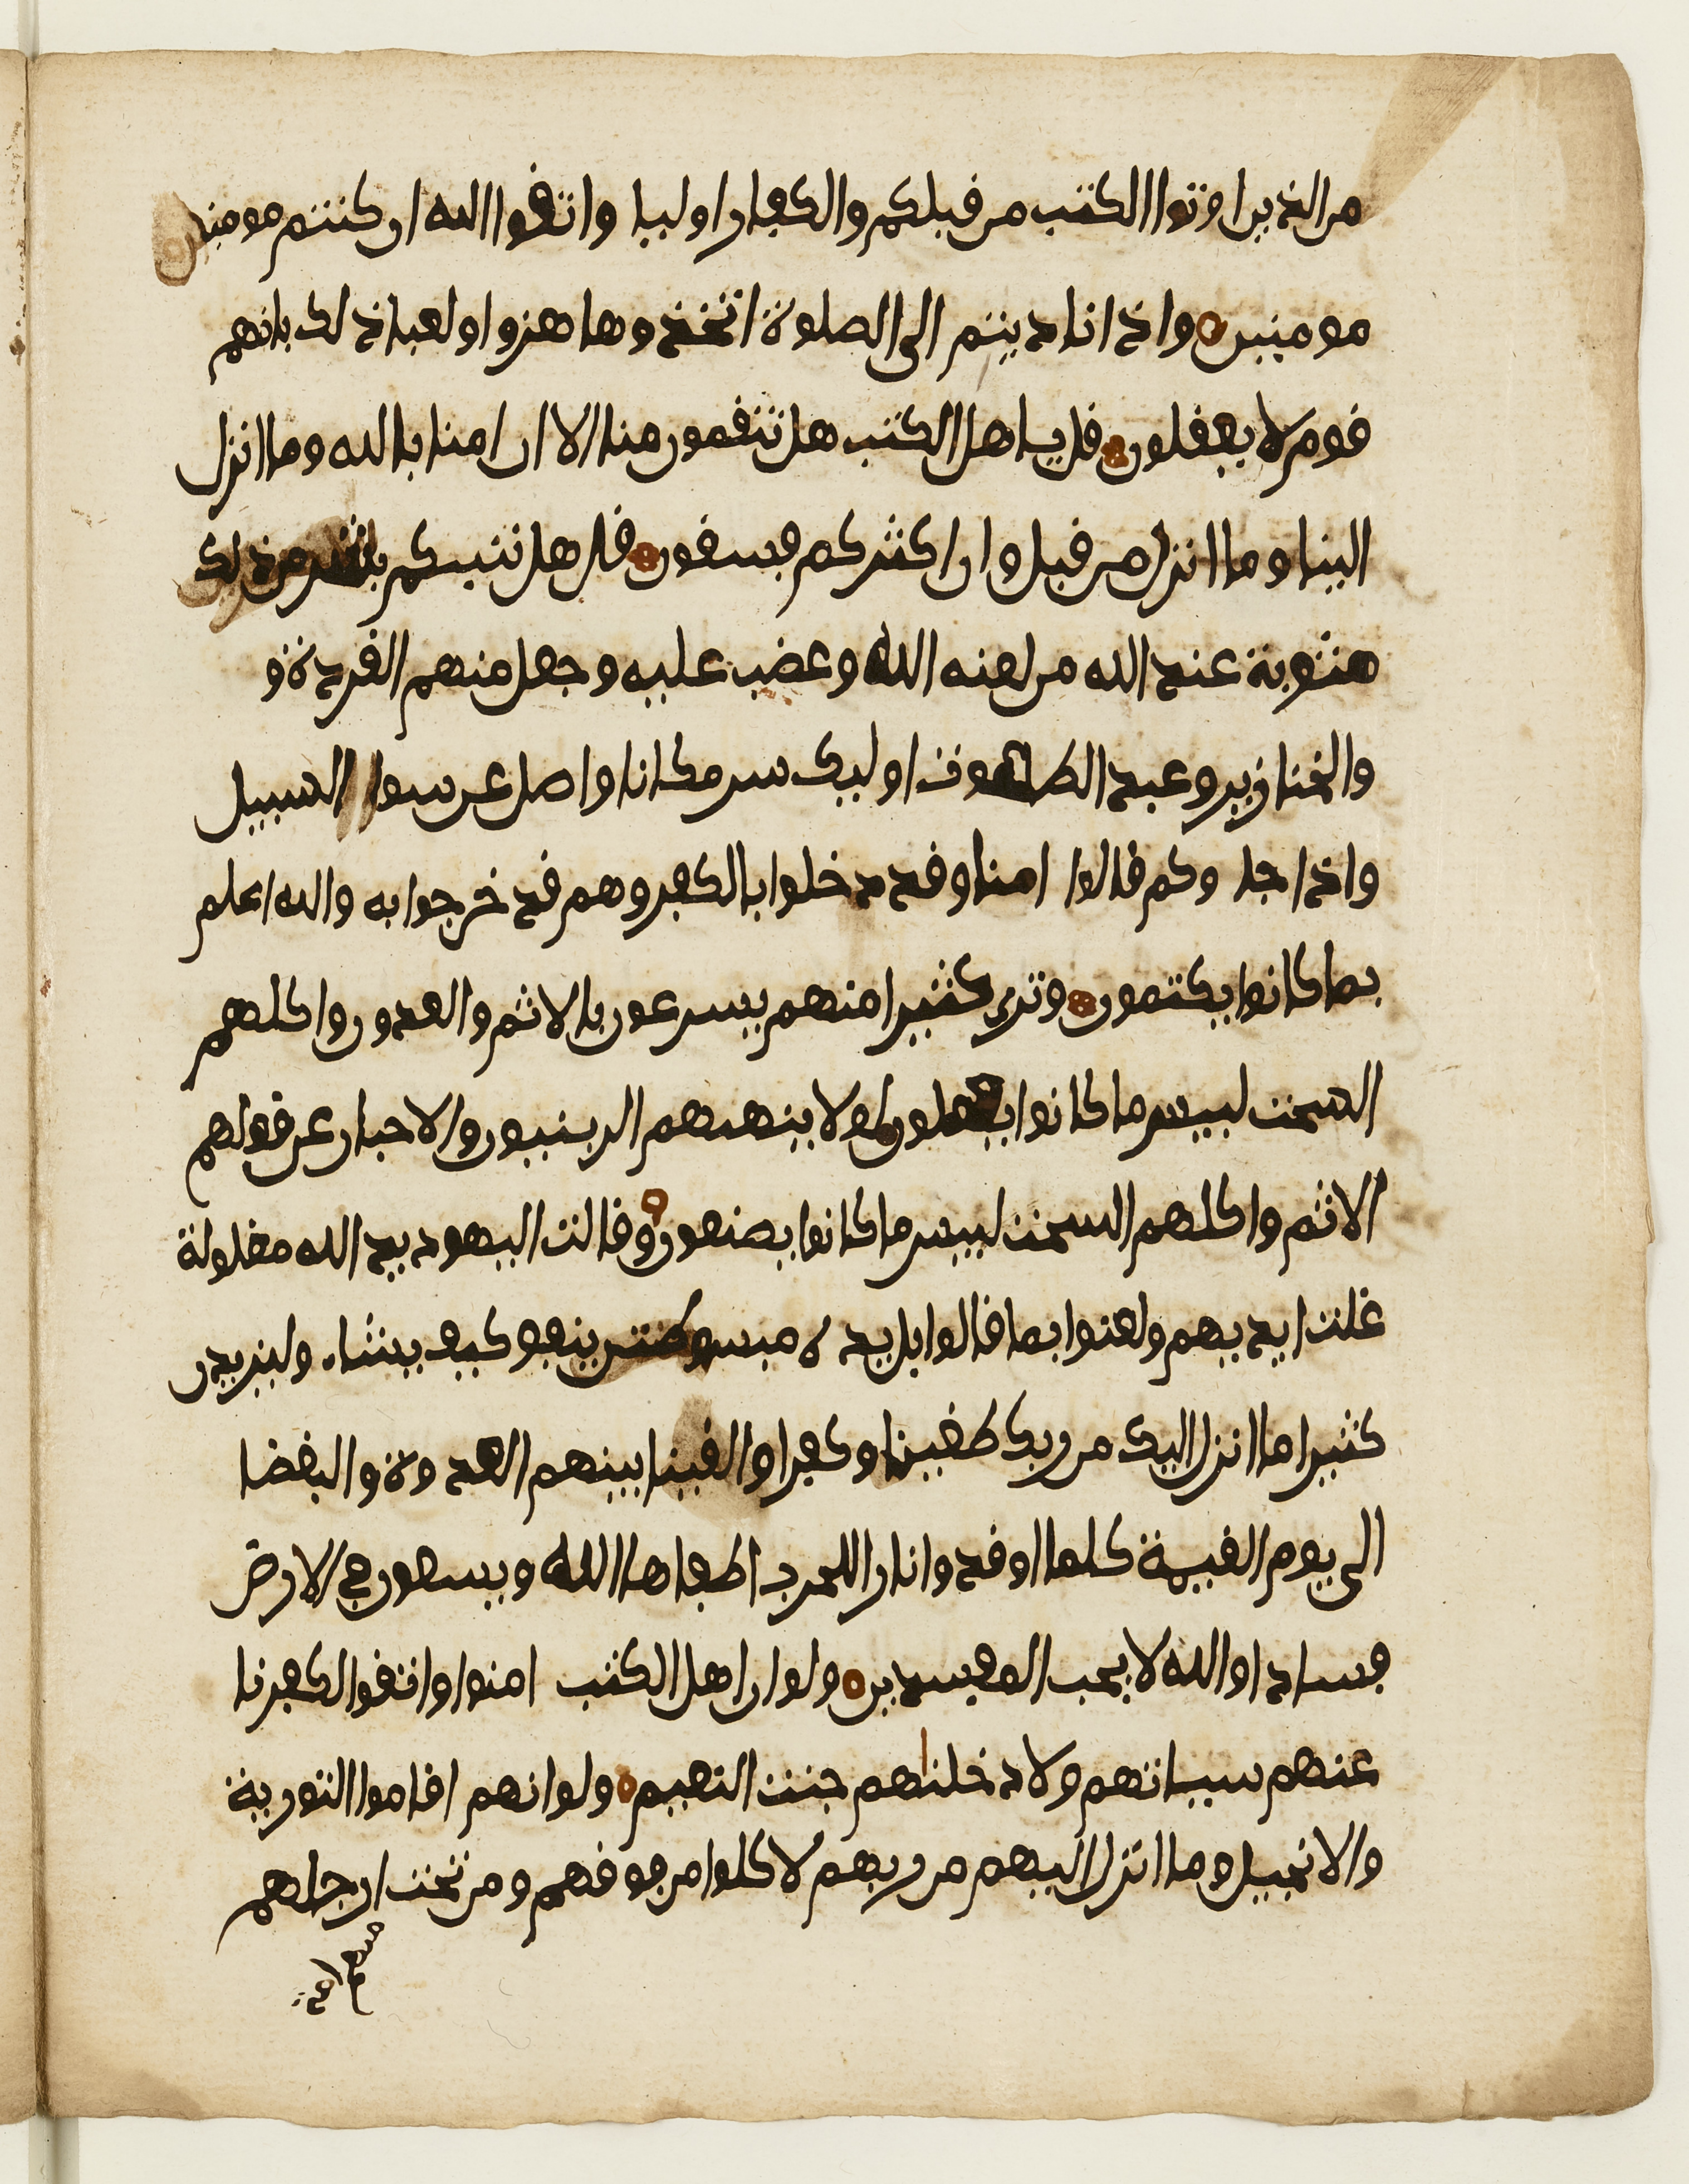 من الذين اوتوا الكتب من قبلكم والكفار اوليا واتقوا الله ان كنتم مومنين
مومنين واذا ناديتم الى الصلوة اتخذوها هزوا ولعبا ذلك بانهم
قوم لا يعقلون قل ياهل الكتب هل تنقمون منا الا ان امنا بالله وما انزل
الينا وما انزل من قبل وان اكثركم فسقون قل هل ننبيكم بشر من ذلك
مثوبة عند الله من لعنه الله وغضب عليه وجعل منهم القردة و
والخنازير وعبد الطاغوت اوليك شر مكانا واضل عن سوا السبيل
واذا جا وكم قالوا امنا وقد دخلوا بالكفر وهم قد خرجوا به والله اعلم
بما كانوا يكتمون وترى كثيرا منهم يسرعون بالاثم والعدون واكلهم
السحت لبيس ما كانوا يعملون لولا ينههم الربنيون والاحبار عن قولهم
الاثم واكلهم السحت لبيس ما كانوا يصنعون وقالت اليهود يد الله مغلولة
غلت ايديهم ولعنوا بما قالوا بل يد ه مبسوطتن ينفق كيف يشاء وليزيدن
كثيرا ما انزل اليك من ربك طغينا وكفرا والقينا بينهم العدوة والبغضا
الى يوم القيمة كلما اوقدوا نارا للحرب اطفاها الله ويسعون في الارض
فسادا والله لا يحب المفسدين ولو ان اهل الكتب امنوا واتقوا لكفرنا
عنهم سياتهم ولادخلناهم جنت النعيم ولو انهم اقاموا التورية
والانجيل وما انزل اليهم من ربهم لاكلوا من فوقهم ومن تحت ارجلهم
منهم امة